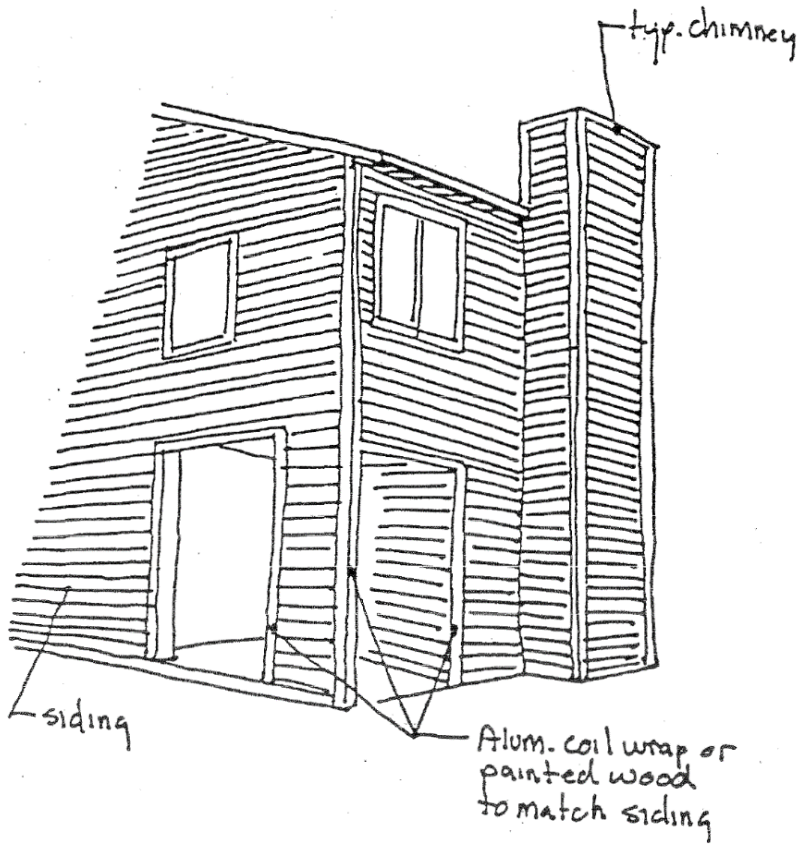 typ. chimney
siding
Alum. coil wrap or
painted wood
to match siding